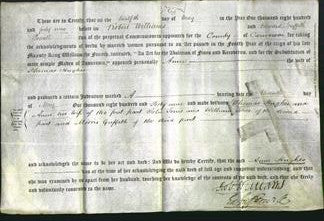 These are to Certify, that on the twelfth day of May in the Year One thousand eight hundred
and forty nine before Robert Williams and
two of the perpetual Commissioners appointed for the County of Carnarvon for taking the
acknowledgments of deeds by married women pursuant to an Act passed in the Fourth Year of the reign of his late
Majesty King William the Fourth, intituled, "An Act for the Abolition of Fines and Recoveries, and for the Substitution of
more simple Modes of Assurance," appeared personally Anne wife of
Thomas Hughes
and produced a certain Indenture marked A bearing date the day
of May One thousand eight hundred and forty nine and made between Thomas Hughes and
Ann his wife of the first part and William of the second
part and Moses Griffith of the third part
and acknowledged the same to be her act and deed: And We do hereby Certify, that the said Ann Hughes
was at the time of her acknowledging the said deed of full age and competent understanding, and that
she was examined by us apart from her husband, touching her knowledge of the contents of the said deed, and that she freely
and voluntarily consented to the same.
Robt Williams